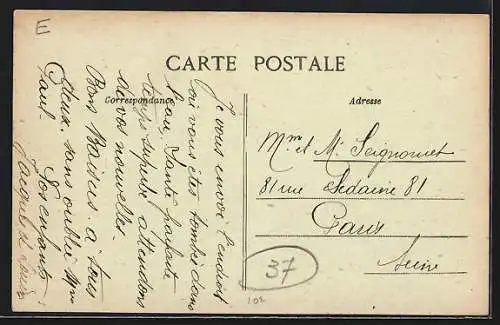 E
CARTE POSTALE
Correspondance
Adresse
Je vous envoie l'endroit
où vous êtes tombés dans
l'eau, Santé parfaite
temps superbe attendons
de vos nouvelles.
Bons Baisers à tous
deux sans oublier Mme
Paul. Vos enfants
Jacques Louis
Mme et Mr Seignouret
81 rue Sedaine 81
Paris
Seine
37